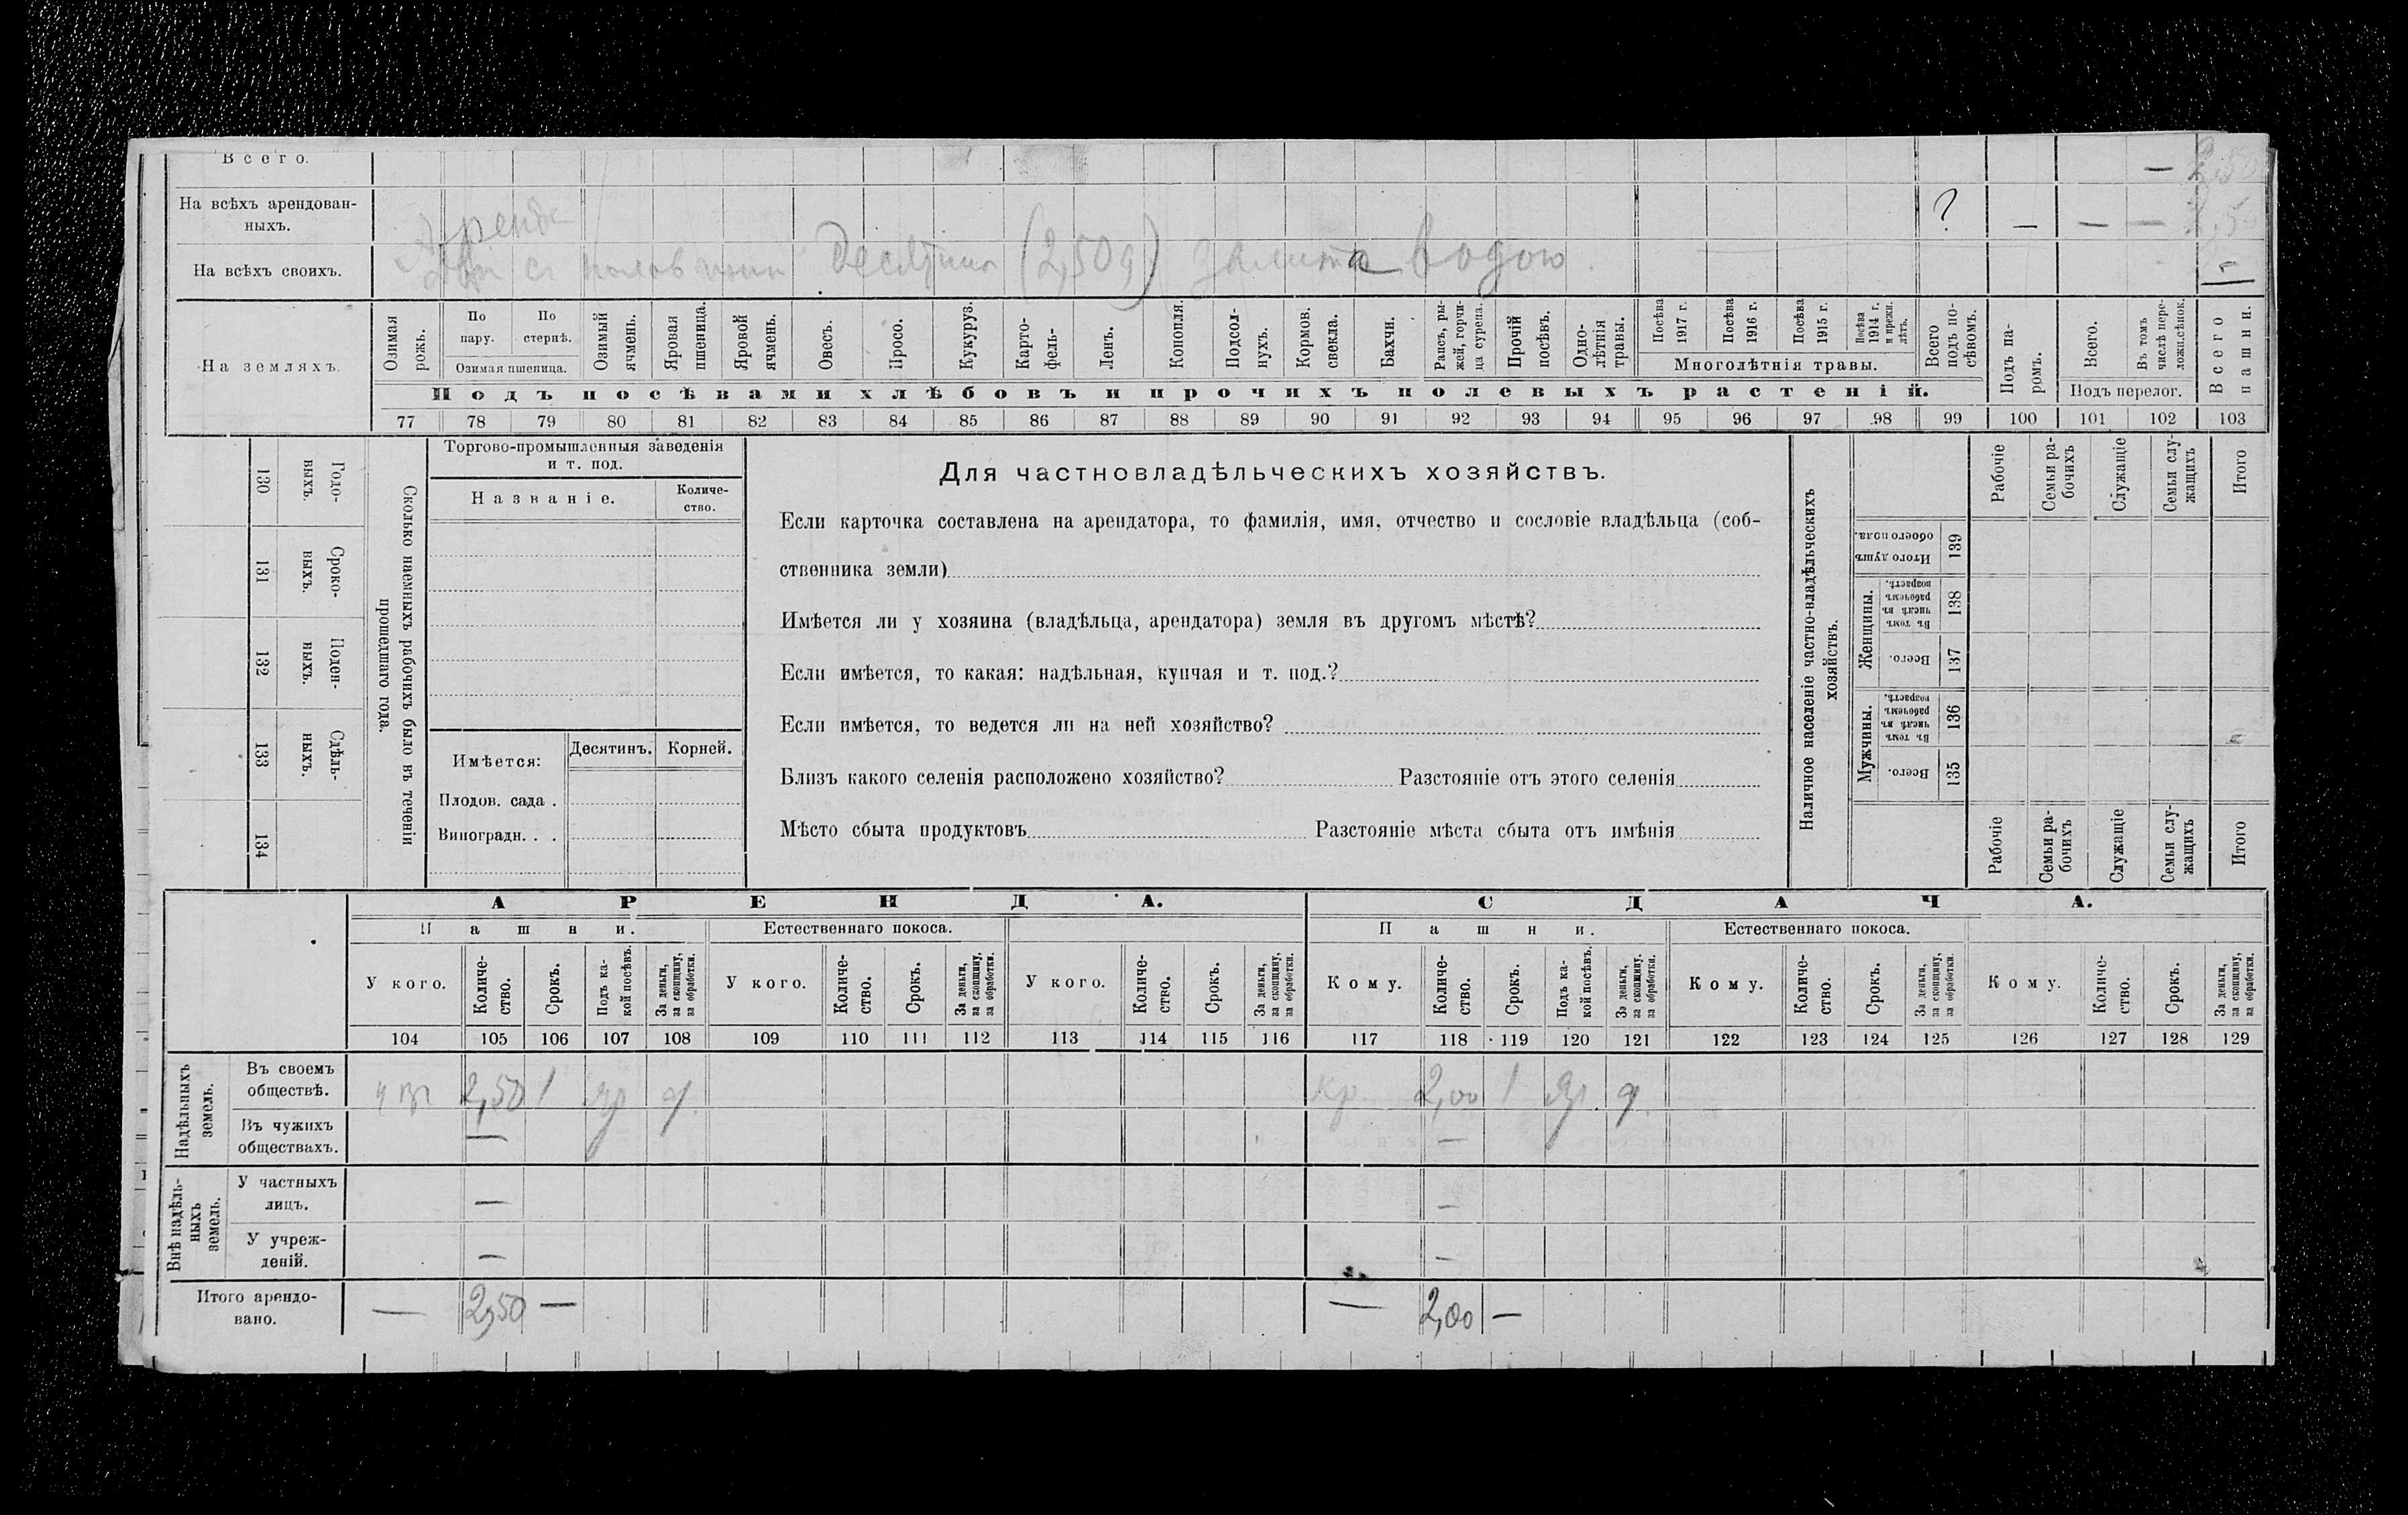 Всего. — 2,50
На всѣхъ арендован-
ныхъ. ? — — — 2,5
Аренд
На всѣхъ своихъ. с половиной десятины (2,50 д) залита водою. —
На земляхъ.
Озимая рожь.
По пару.
По стернѣ.
Озимая пшеница.
Озимый ячмень.
Яровая пшеница.
Яровой ячмень.
Овесъ.
Просо.
Кукуруз.
Карто-
фель-
Ленъ.
Конопля.
Подсол-
нухъ.
Кормов.
свекла.
Бахчи.
Рапсъ, ры-
жей, горчи-
ца сурепа.
Прочій
посѣвъ.
Одно-
лѣтнія
травы.
Посѣва
1917 г.
Посѣва
1916 г.
Посѣва
1915 г.
Посѣва
1914 г.
и прежн.
лѣтъ.
Многолѣтнія травы.
Всего
подъ по-
сѣвомъ.
Подъ па-
ромъ.
Всего.
Въ томъ
числѣ пере-
ложн.сѣнок.
Подъ перелог.
Всего
пашни.
Подъ посѣвами хлѣбовъ и прочихъ полевыхъ растеній.
77 78 79 80 81 82 83 84 85 86 87 88 89 90 91 92 93 94 95 96 97 98 99 100 101 102 103
Годо-
выхъ.
130
Сроко-
выхъ.
131
Поден-
ныхъ.
132
Сдѣль-
ныхъ.
133
134
Сколько наемныхъ рабочихъ было въ теченіи
прошедшаго года.
Торгово-промышленныя заведенія
и т. под.
Названіе.
Количе-
ство.
Имѣется:
Десятинъ.
Корней.
Плодов. сада .
Виноградн. . .
Для частновладѣльческихъ хозяйствъ.
Если карточка составлена на арендатора, то фамилія, имя, отчество и сословіе владѣльца (соб-
ственника земли)
Имѣется ли у хозяина (владѣльца, арендатора) земля въ другомъ мѣстѣ?
Если имѣется, то какая: надѣльная, купчая и т. под.?
Если имѣется, то ведется ли на ней хозяйство?
Близъ какого селенія расположено хозяйство? Разстояніе отъ этого селенія
Мѣсто сбыта продуктовъ Разстояніе мѣста сбыта отъ имѣнія
Наличное населеніе частно-владѣльческихъ
хозяйствъ.
Рабочіе
Семьи ра-
бочихъ
Служащіе
Семьи слу-
жащихъ
Итого
Итого душъ
обоего пола.
139
Женщины.
Въ томъ
числѣ въ
рабочемъ
возрастѣ.
138
Всего.
137
Мужчины.
Въ томъ
числѣ въ
рабочемъ
возрастѣ.
136
Всего.
135
Рабочіе
Семьи ра-
бочихъ
Служащіе
Семьи слу-
жащихъ
Итого
АРЕНДА.
СДАЧА.
Пашни.
Естественнаго покоса.
Пашни.
Естественнаго покоса.
У кого.
Количе-
ство.
Срокъ.
Подъ ка-
кой посѣвъ.
За деньги,
за скопщину,
за обработки.
У кого.
Количе-
ство.
Срокъ.
За деньги,
за скопщину,
за обработки.
У кого.
Количе-
ство.
Срокъ.
За деньги,
за скопщину,
за обработки.
Кому.
Количе-
ство.
Срокъ.
Подъ ка-
кой посѣвъ.
За деньги,
за скопщину.
за обработки.
Кому.
Количе-
ство.
Срокъ.
За деньги,
за скопщину,
за обработки.
Кому.
Количе-
ство.
Срокъ.
За деньги,
за скопщину,
за обработки.
104 105 106 107 108 109 110 111 112 113 114 115 116 117 118 119 120 121 122 123 124 125 126 127 128 129
Надѣльныхъ
земель.
Въ своемъ
обществѣ. 2,50 1 яр д. кр. 2,00 1 яр. д.
Въ чужихъ
обществахъ. — —
Внѣ надѣль-
ныхъ
земель.
У частныхъ
лицъ. — —
У учреж-
деній. — —
Итого арендо-
вано. — 2,50 — — 2,00 —